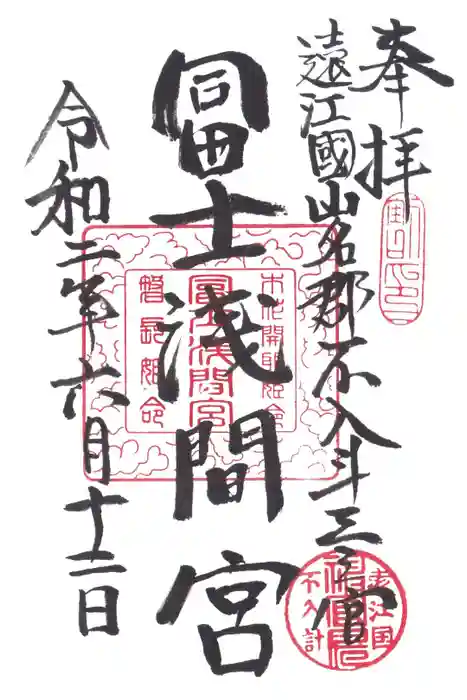 奉拝
遠江國山名郡不入斗三之宮
冨士淺間宮
令和二年六月十二日
木花開耶姫命
冨士浅間宮
磐長姫命
遠江国
不入計